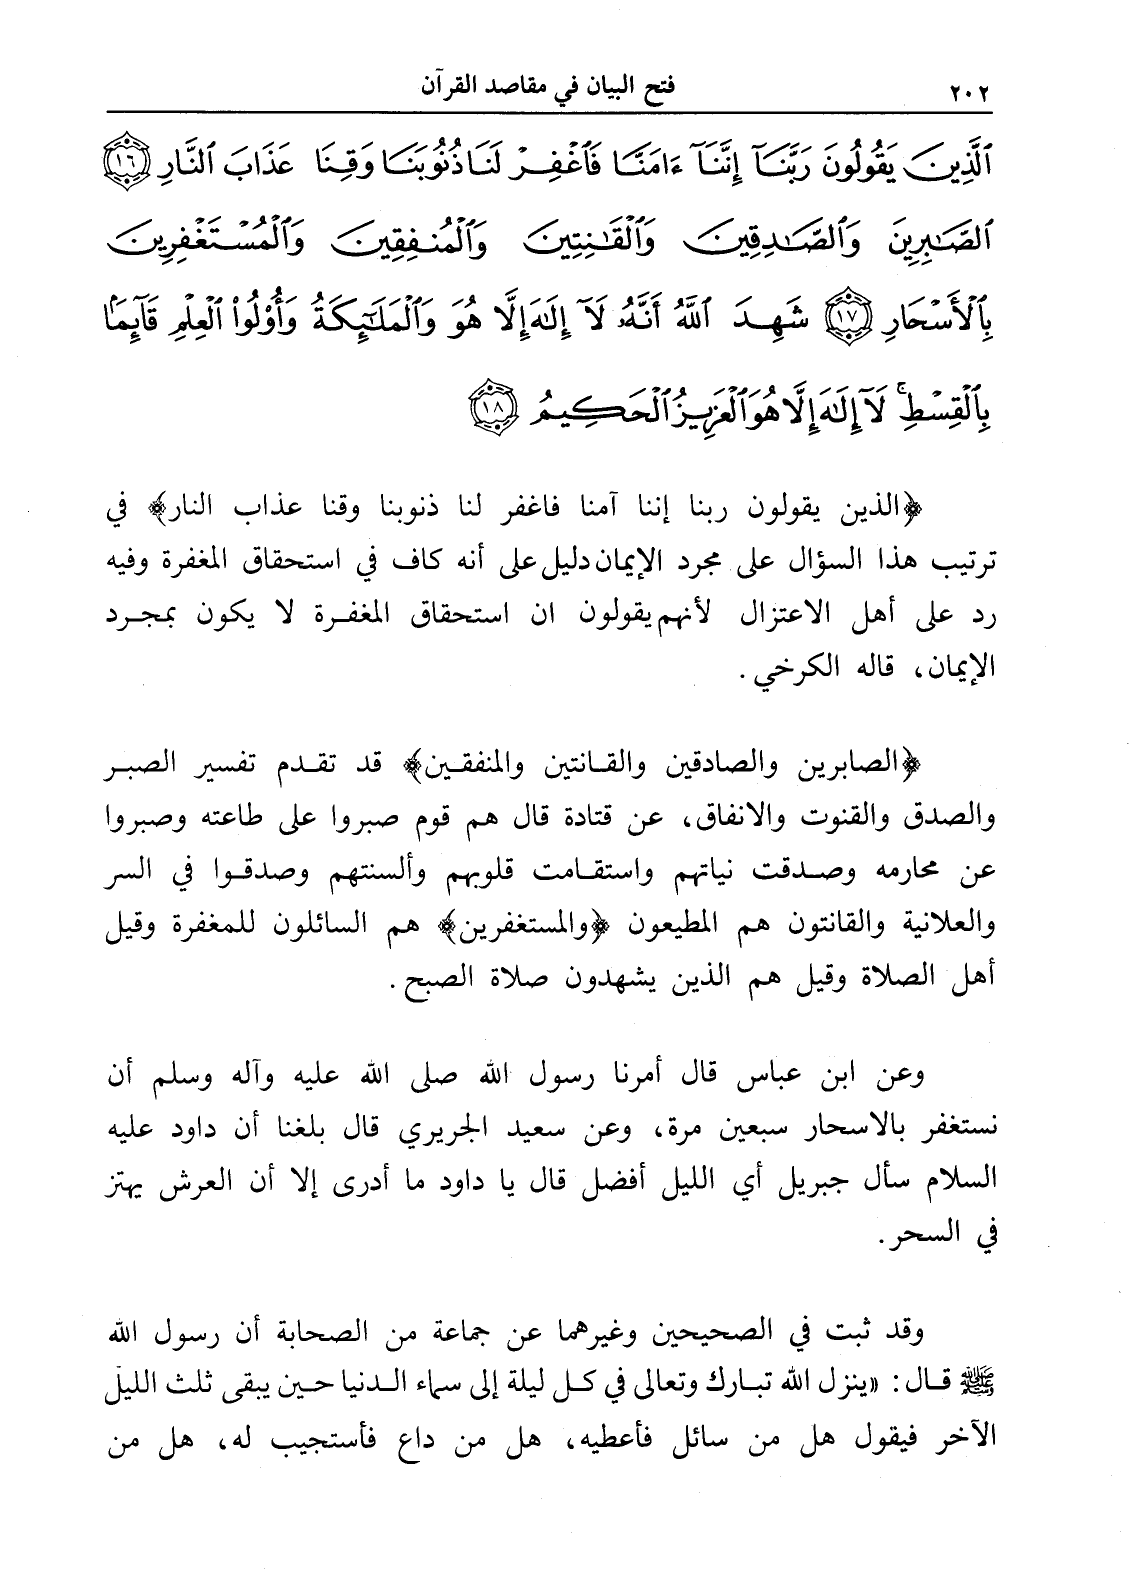 ٢٠٢ فتح البيان في مقاصد القرآن
ٱلَّذِينَ يَقُولُونَ رَبَّنَآ إِنَّنَآ ءَامَنَّا فَٱغْفِرْ لَنَا ذُنُوبَنَا وَقِنَا عَذَابَ ٱلنَّارِ ١٦
ٱلصَّٰبِرِينَ وَٱلصَّٰدِقِينَ وَٱلْقَٰنِتِينَ وَٱلْمُنفِقِينَ وَٱلْمُسْتَغْفِرِينَ
بِٱلْأَسْحَارِ ١٧ شَهِدَ ٱللَّهُ أَنَّهُۥ لَآ إِلَٰهَ إِلَّا هُوَ وَٱلْمَلَٰٓئِكَةُ وَأُو۟لُوا۟ ٱلْعِلْمِ قَآئِمًۢا
بِٱلْقِسْطِ ۚ لَآ إِلَٰهَ إِلَّا هُوَ ٱلْعَزِيزُ ٱلْحَكِيمُ ١٨
﴿الذين يقولون ربنا إننا آمنا فاغفر لنا ذنوبنا وقنا عذاب النار﴾ في
ترتيب هذا السؤال على مجرد الإيمان دليل على أنه كاف في استحقاق المغفرة وفيه
رد على أهل الاعتزال لأنهم يقولون ان استحقاق المغفرة لا يكون بمجرد
الإيمان، قاله الكرخي.
﴿الصابرين والصادقين والقانتين والمنفقين﴾ قد تقدم تفسير الصبر
والصدق والقنوت والانفاق، عن قتادة قال هم قوم صبروا على طاعته وصبروا
عن محارمه وصدقت نياتهم واستقامت قلوبهم وألسنتهم وصدقوا في السر
والعلانية والقانتون هم المطيعون ﴿والمستغفرين﴾ هم السائلون للمغفرة وقيل
أهل الصلاة وقيل هم الذين يشهدون صلاة الصبح.
وعن ابن عباس قال أمرنا رسول الله صلى الله عليه وآله وسلم أن
نستغفر بالاسحار سبعين مرة، وعن سعيد الجريري قال بلغنا أن داود عليه
السلام سأل جبريل أي الليل أفضل قال يا داود ما أدرى إلا أن العرش يهتز
في السحر.
وقد ثبت في الصحيحين وغيرهما عن جماعة من الصحابة أن رسول الله
ﷺ قال: «ينزل الله تبارك وتعالى في كل ليلة إلى سماء الدنيا حين يبقى ثلث الليل
الآخر فيقول هل من سائل فأعطيه، هل من داع فأستجيب له، هل من